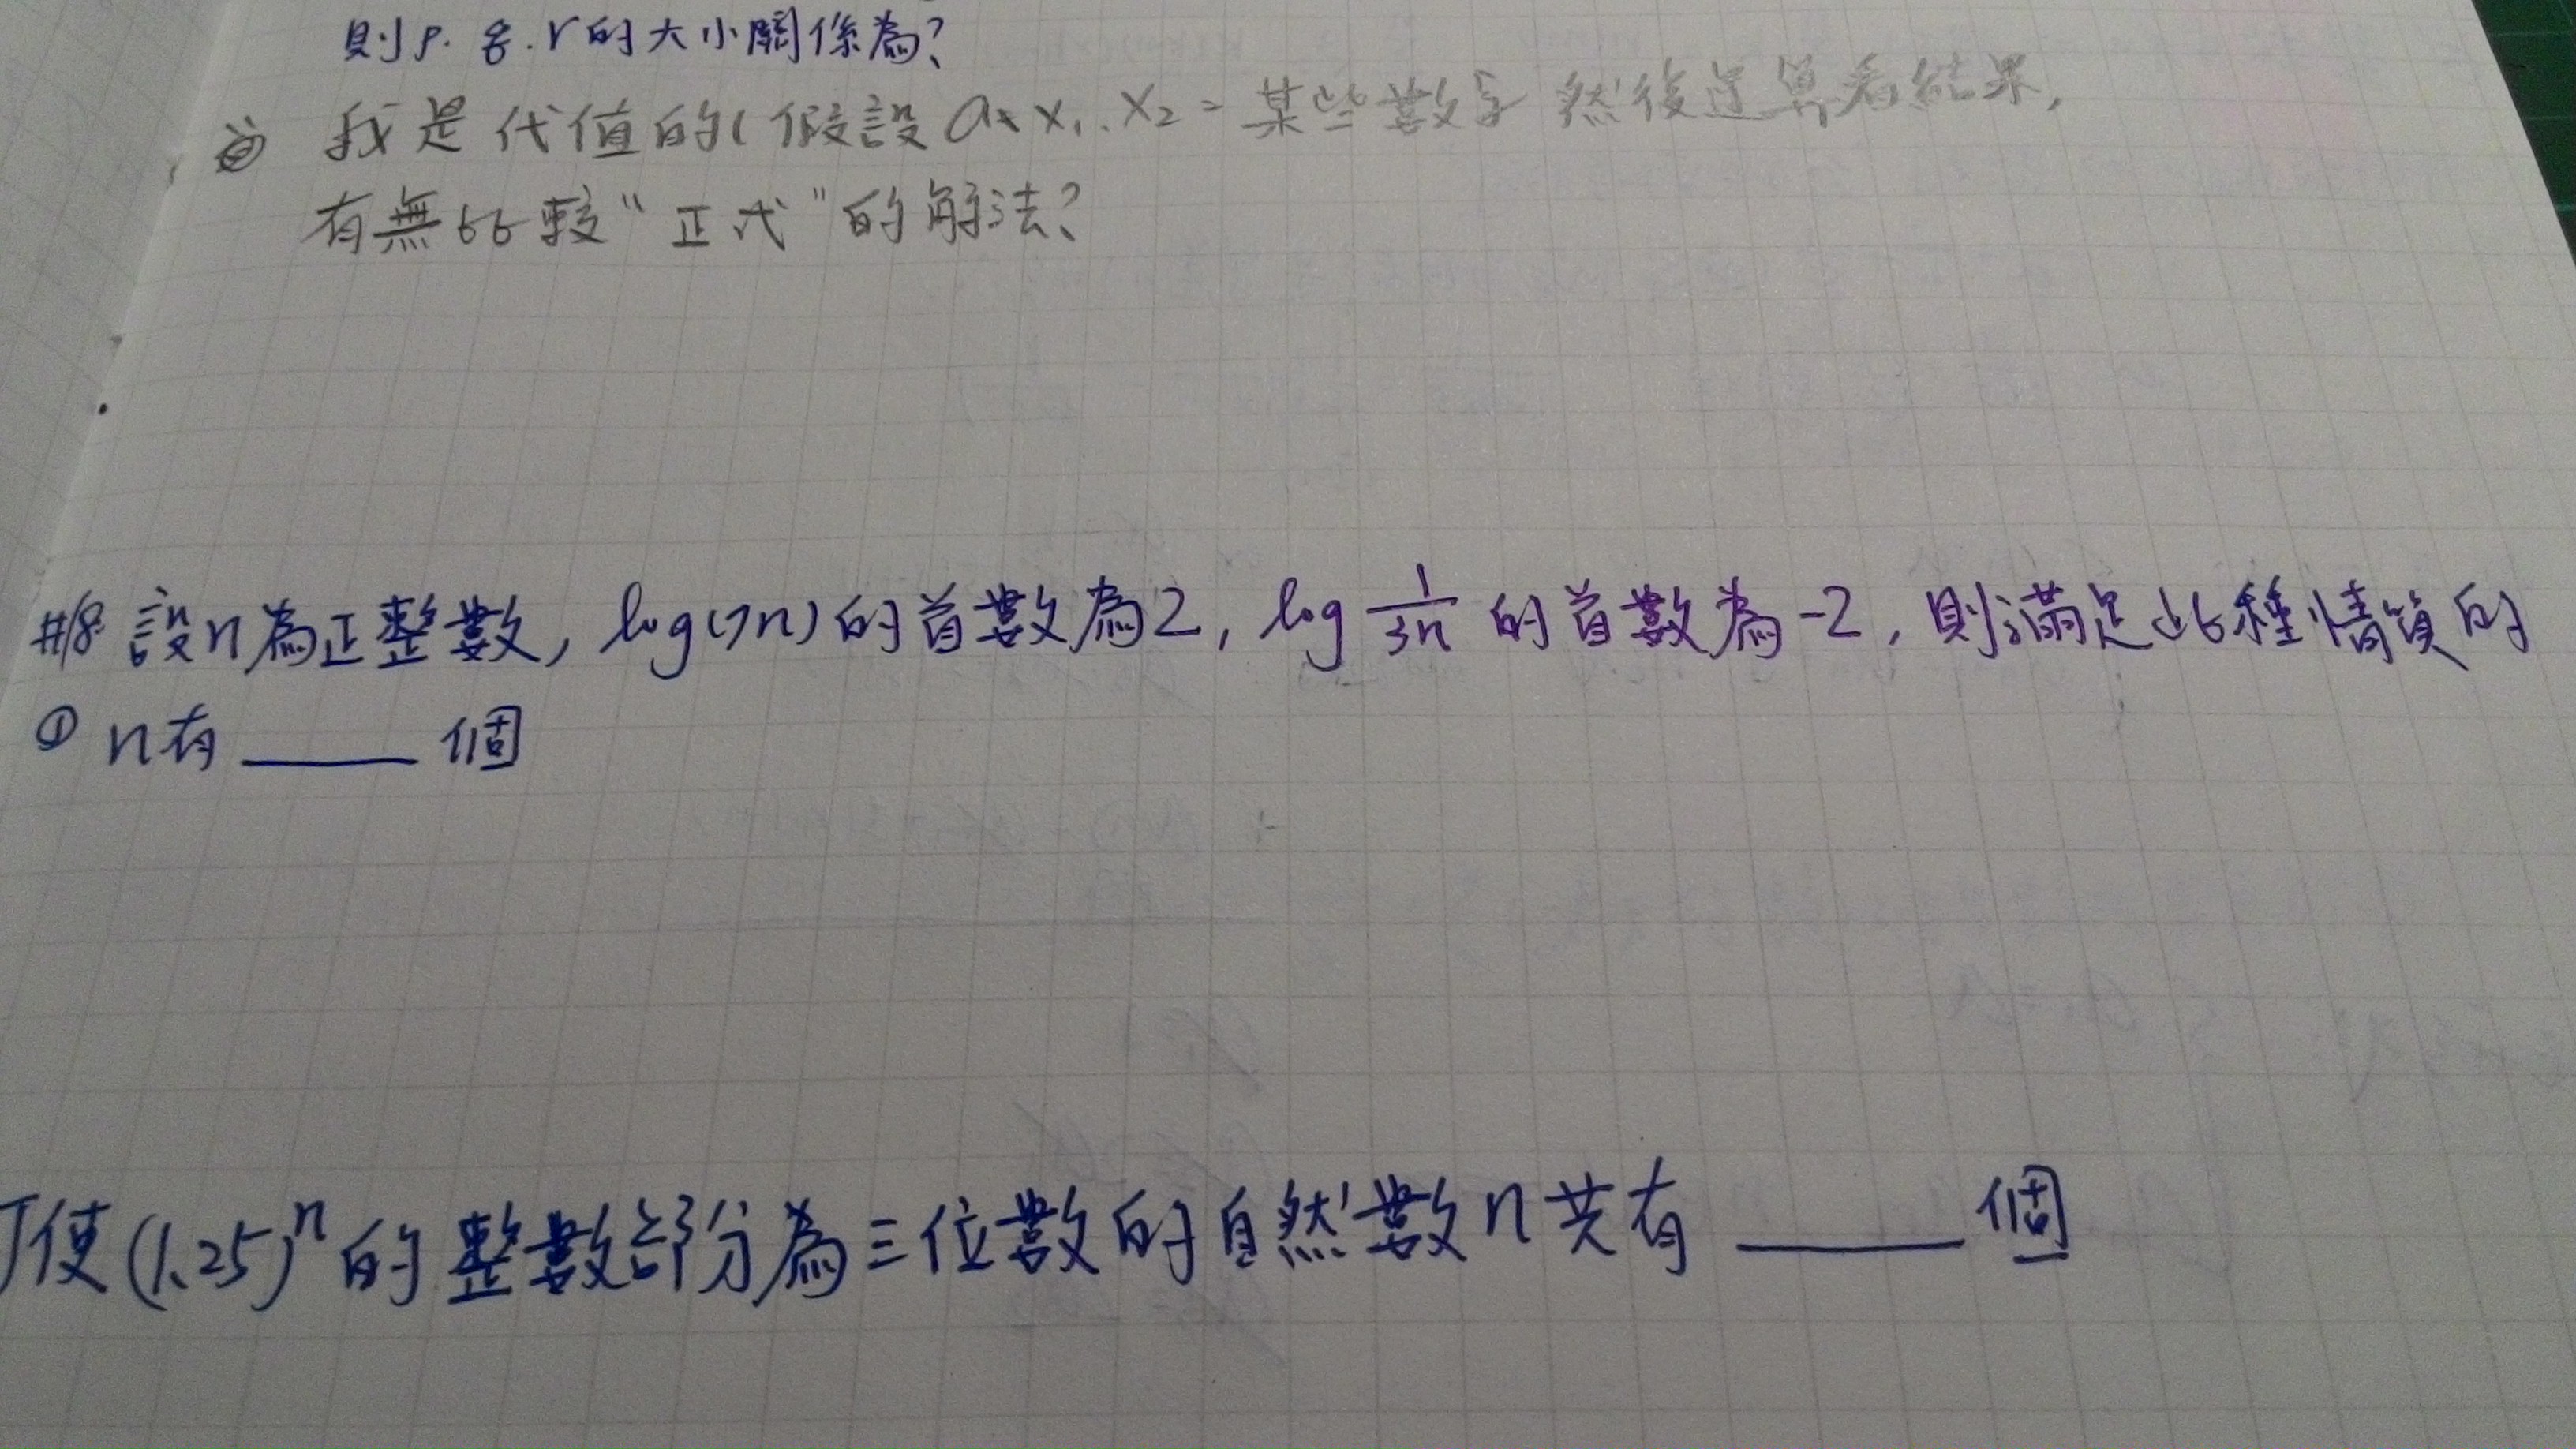 則p.q.r的大小關係為?
我是代值的(假設a、x₁.x₂=某些數字 然後運算看結果,
有無比較"正式"的解法?
#18 設n為正整數, log(7n)的首數為2, log 1/3n 的首數為-2, 則滿足此種情質的
① n有____個
使(1.25)ⁿ的整數部分為三位數的自然數n共有____個